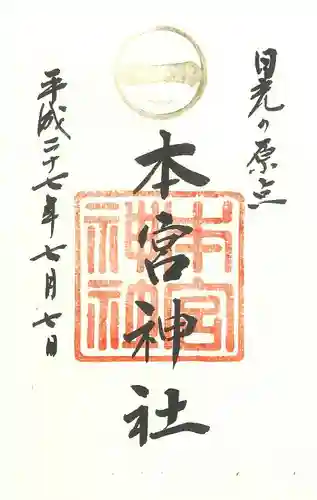 日光の原点
本宮神社
本宮神社
平成二十七年七月七日